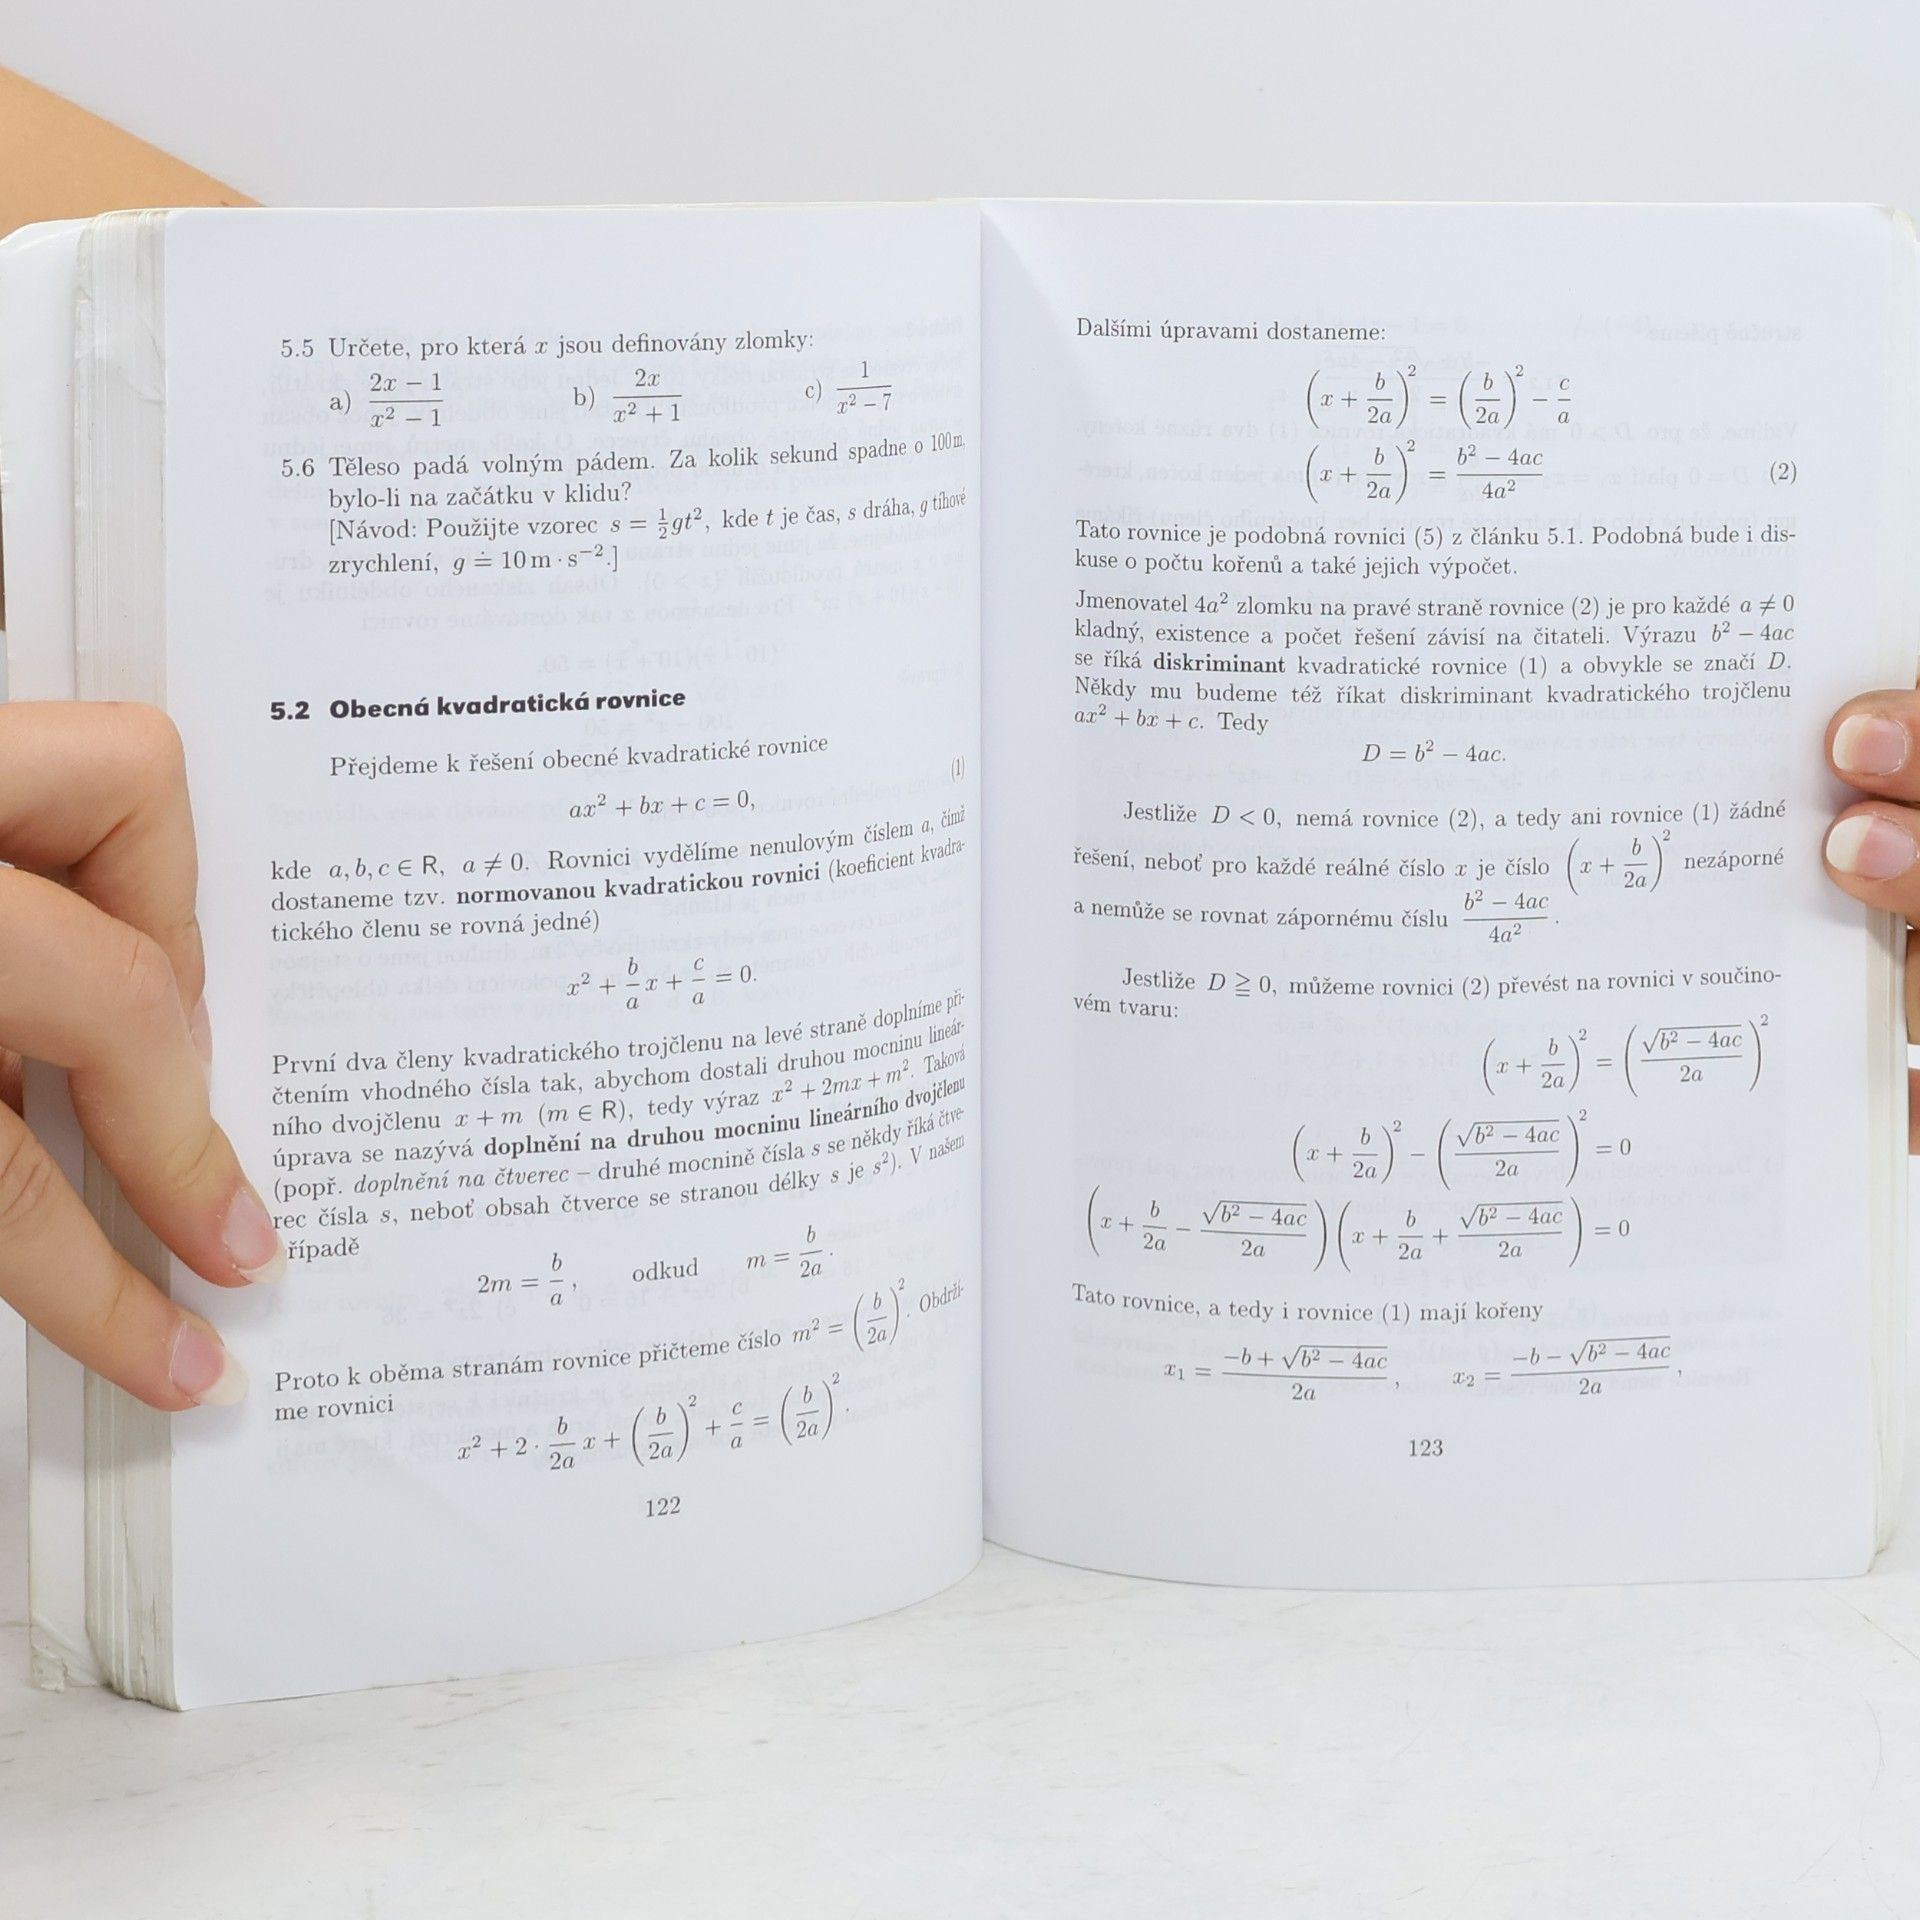 5.5 Určete, pro která x jsou definovány zlomky:
a) (2x − 1)/(x² − 1) b) 2x/(x² + 1) c) 1/(x² − 7)
5.6 Těleso padá volným pádem. Za kolik sekund spadne o 100 m,
bylo-li na začátku v klidu?
[Návod: Použijte vzorec s = ½gt², kde t je čas, s dráha, g tíhové
zrychlení, g ≐ 10 m · s⁻².]
5.2 Obecná kvadratická rovnice
Přejdeme k řešení obecné kvadratické rovnice
ax² + bx + c = 0, (1)
kde a, b, c ∈ R, a ≠ 0. Rovnici vydělíme nenulovým číslem a, čímž
dostaneme tzv. normovanou kvadratickou rovnici (koeficient kvadra-
tického členu se rovná jedné)
x² + (b/a)x + c/a = 0.
První dva členy kvadratického trojčlenu na levé straně doplníme při-
čtením vhodného čísla tak, abychom dostali druhou mocninu lineár-
ního dvojčlenu x + m (m ∈ R), tedy výraz x² + 2mx + m². Taková
úprava se nazývá doplnění na druhou mocninu lineárního dvojčlenu
(popř. doplnění na čtverec – druhé mocnině čísla s se někdy říká čtve-
rec čísla s, neboť obsah čtverce se stranou délky s je s²). V našem
řípadě
2m = b/a, odkud m = b/2a.
Proto k oběma stranám rovnice přičteme číslo m² = (b/2a)². Obdrží-
me rovnici
x² + 2 · (b/2a)x + (b/2a)² + c/a = (b/2a)².
122
Dalšími úpravami dostaneme:
(x + b/2a)² = (b/2a)² − c/a
(x + b/2a)² = (b² − 4ac)/4a² (2)
Tato rovnice je podobná rovnici (5) z článku 5.1. Podobná bude i dis-
kuse o počtu kořenů a také jejich výpočet.
Jmenovatel 4a² zlomku na pravé straně rovnice (2) je pro každé a ≠ 0
kladný, existence a počet řešení závisí na čitateli. Výrazu b² − 4ac
se říká diskriminant kvadratické rovnice (1) a obvykle se značí D.
Někdy mu budeme též říkat diskriminant kvadratického trojčlenu
ax² + bx + c. Tedy
D = b² − 4ac.
Jestliže D < 0, nemá rovnice (2), a tedy ani rovnice (1) žádné
řešení, neboť pro každé reálné číslo x je číslo (x + b/2a)² nezáporné
a nemůže se rovnat zápornému číslu (b² − 4ac)/4a².
Jestliže D ≧ 0, můžeme rovnici (2) převést na rovnici v součino-
vém tvaru:
(x + b/2a)² = (√(b² − 4ac)/2a)²
(x + b/2a)² − (√(b² − 4ac)/2a)² = 0
(x + b/2a − √(b² − 4ac)/2a)(x + b/2a + √(b² − 4ac)/2a) = 0
Tato rovnice, a tedy i rovnice (1) mají kořeny
x₁ = (−b + √(b² − 4ac))/2a, x₂ = (−b − √(b² − 4ac))/2a,
123